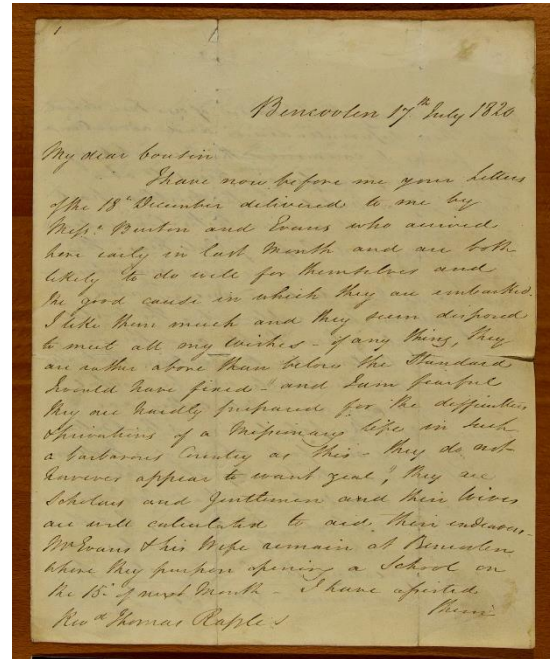 1
Bencoolen 17th July 1820
My dear Cousin
I have now before me your Letters
of the 18th December delivered to me by
Messrs Burton and Evans who arrived
here early in last Month and are both
likely to do well for themselves and
the good cause in which they are embarked.
I like them much and they seem disposed
to meet all my wishes - if any thing, they
are rather above than below the Standard
I would have fixed - and I am fearful
they are hardly prepared for the difficulties
& privations of a Missionary life in such
a barbarous Country as this - they do not
however appear to want zeal, they are
Scholars and Gentlemen and their Wives
are well calculated to aid their endeavors -
Mr Evans & his Wife remain at Bencoolen
where they purpose opening a School on
the 15th of next Month - I have assisted
them
Revd Thomas Raffles